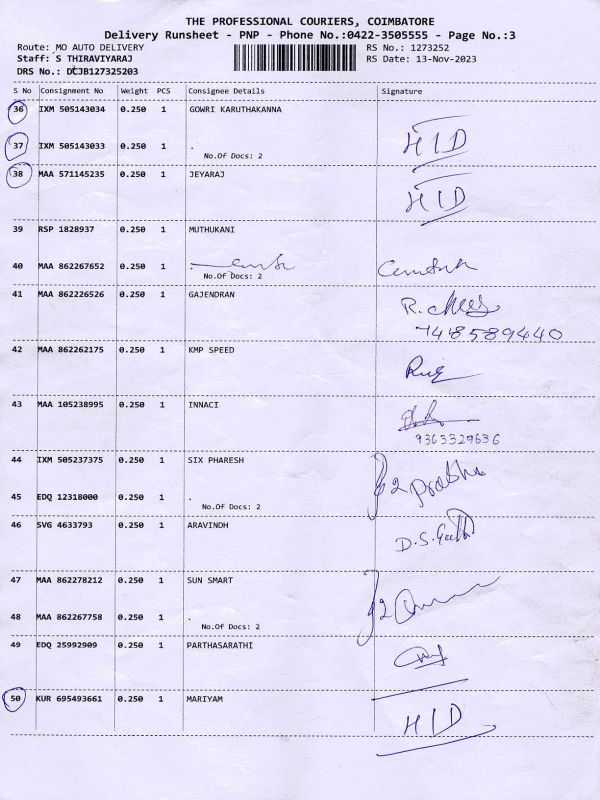 THE PROFESSIONAL COURIERS, COIMBATORE
Delivery Runsheet - PNP - Phone No.:0422-3505555 - Page No.:3
Route: MO AUTO DELIVERY RS No.: 1273252
Staff: S THIRAVIYARAJ RS Date: 13-Nov-2023
DRS No.: DCJB127325203
S No Consignment No Weight PCS Consignee Details Signature
36 IXM 505143034 0.250 1 GOWRI KARUTHAKANNA
37 IXM 505143033 0.250 1 . HID
No.Of Docs: 2
38 MAA 571145235 0.250 1 JEYARAJ HID
39 RSP 1828937 0.250 1 MUTHUKANI
40 MAA 862267652 0.250 1 .
No.Of Docs: 2
41 MAA 862226526 0.250 1 GAJENDRAN R.
7418589440
42 MAA 862262175 0.250 1 KMP SPEED
43 MAA 105238995 0.250 1 INNACI
9363329636
44 IXM 505237375 0.250 1 SIX PHARESH 2 Prabhu
45 EDQ 12318000 0.250 1 .
No.Of Docs: 2
46 SVG 4633793 0.250 1 ARAVINDH D.S.
47 MAA 862278212 0.250 1 SUN SMART 2
48 MAA 862267758 0.250 1 .
No.Of Docs: 2
49 EDQ 25992909 0.250 1 PARTHASARATHI
50 KUR 695493661 0.250 1 MARIYAM HID